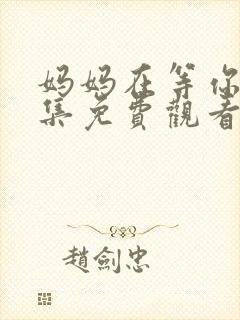 妈妈在等你
集免費觀看
趙劍忠